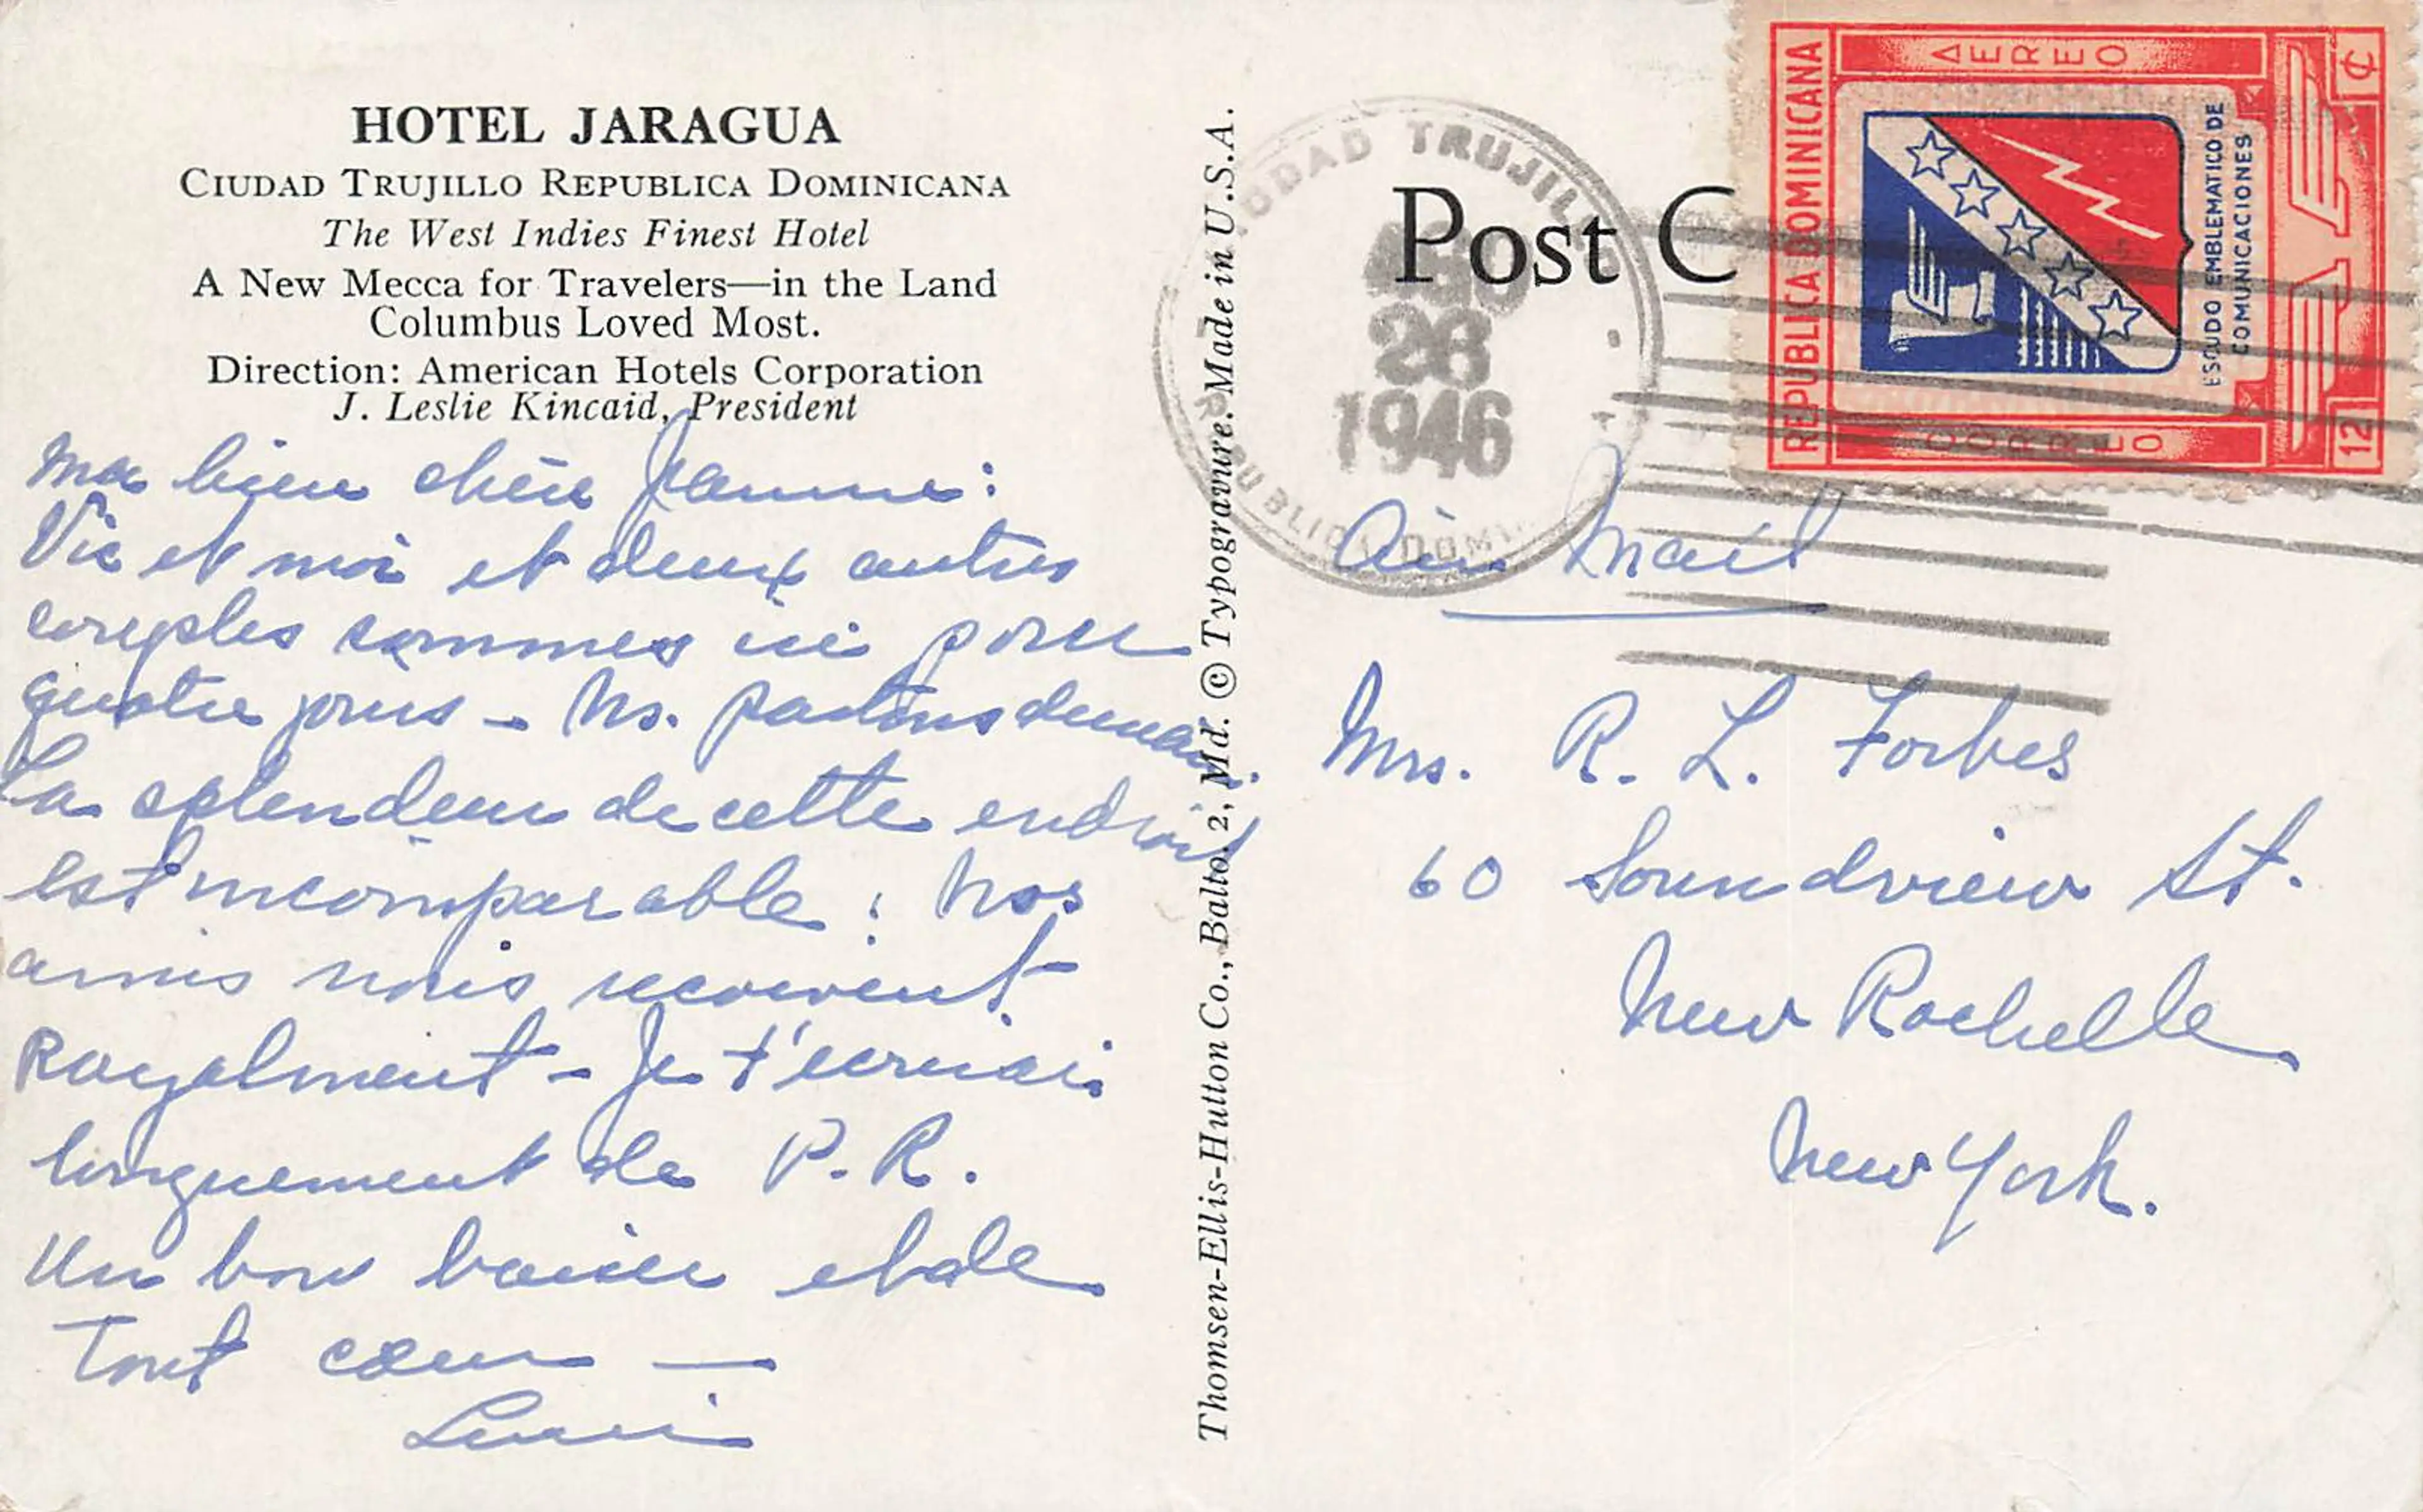 HOTEL JARAGUA
CIUDAD TRUJILLO REPUBLICA DOMINICANA
The West Indies Finest Hotel
A New Mecca for Travelers—in the Land
Columbus Loved Most.
Direction: American Hotels Corporation
J. Leslie Kincaid, President
Ma bien chère Jeanne:
Vic et moi et deux autres
couples sommes ici pour
quatre jours - Ns. partons demain.
La splendeur de cette endroit
est incomparable: Nos
amis nous recoivent
Royalment - Je t'ecrirai
longuement de P. R.
Un bon baiser et de
Tout cœur —
Thomsen-Ellis-Hutton Co., Balto. 2, Md. © Typogravure. Made in U.S.A.
Post C
CIUDAD TRUJILLO
AGO
26
1946
REPUBLICA DOM
REPUBLICA DOMINICANA
AEREO
ESCUDO EMBLEMATICO DE
COMUNICACIONES
CORREO
12 ¢
Air Mail
Mrs. R. L. Forbes
60 Soundview St.
New Rochelle
New York.